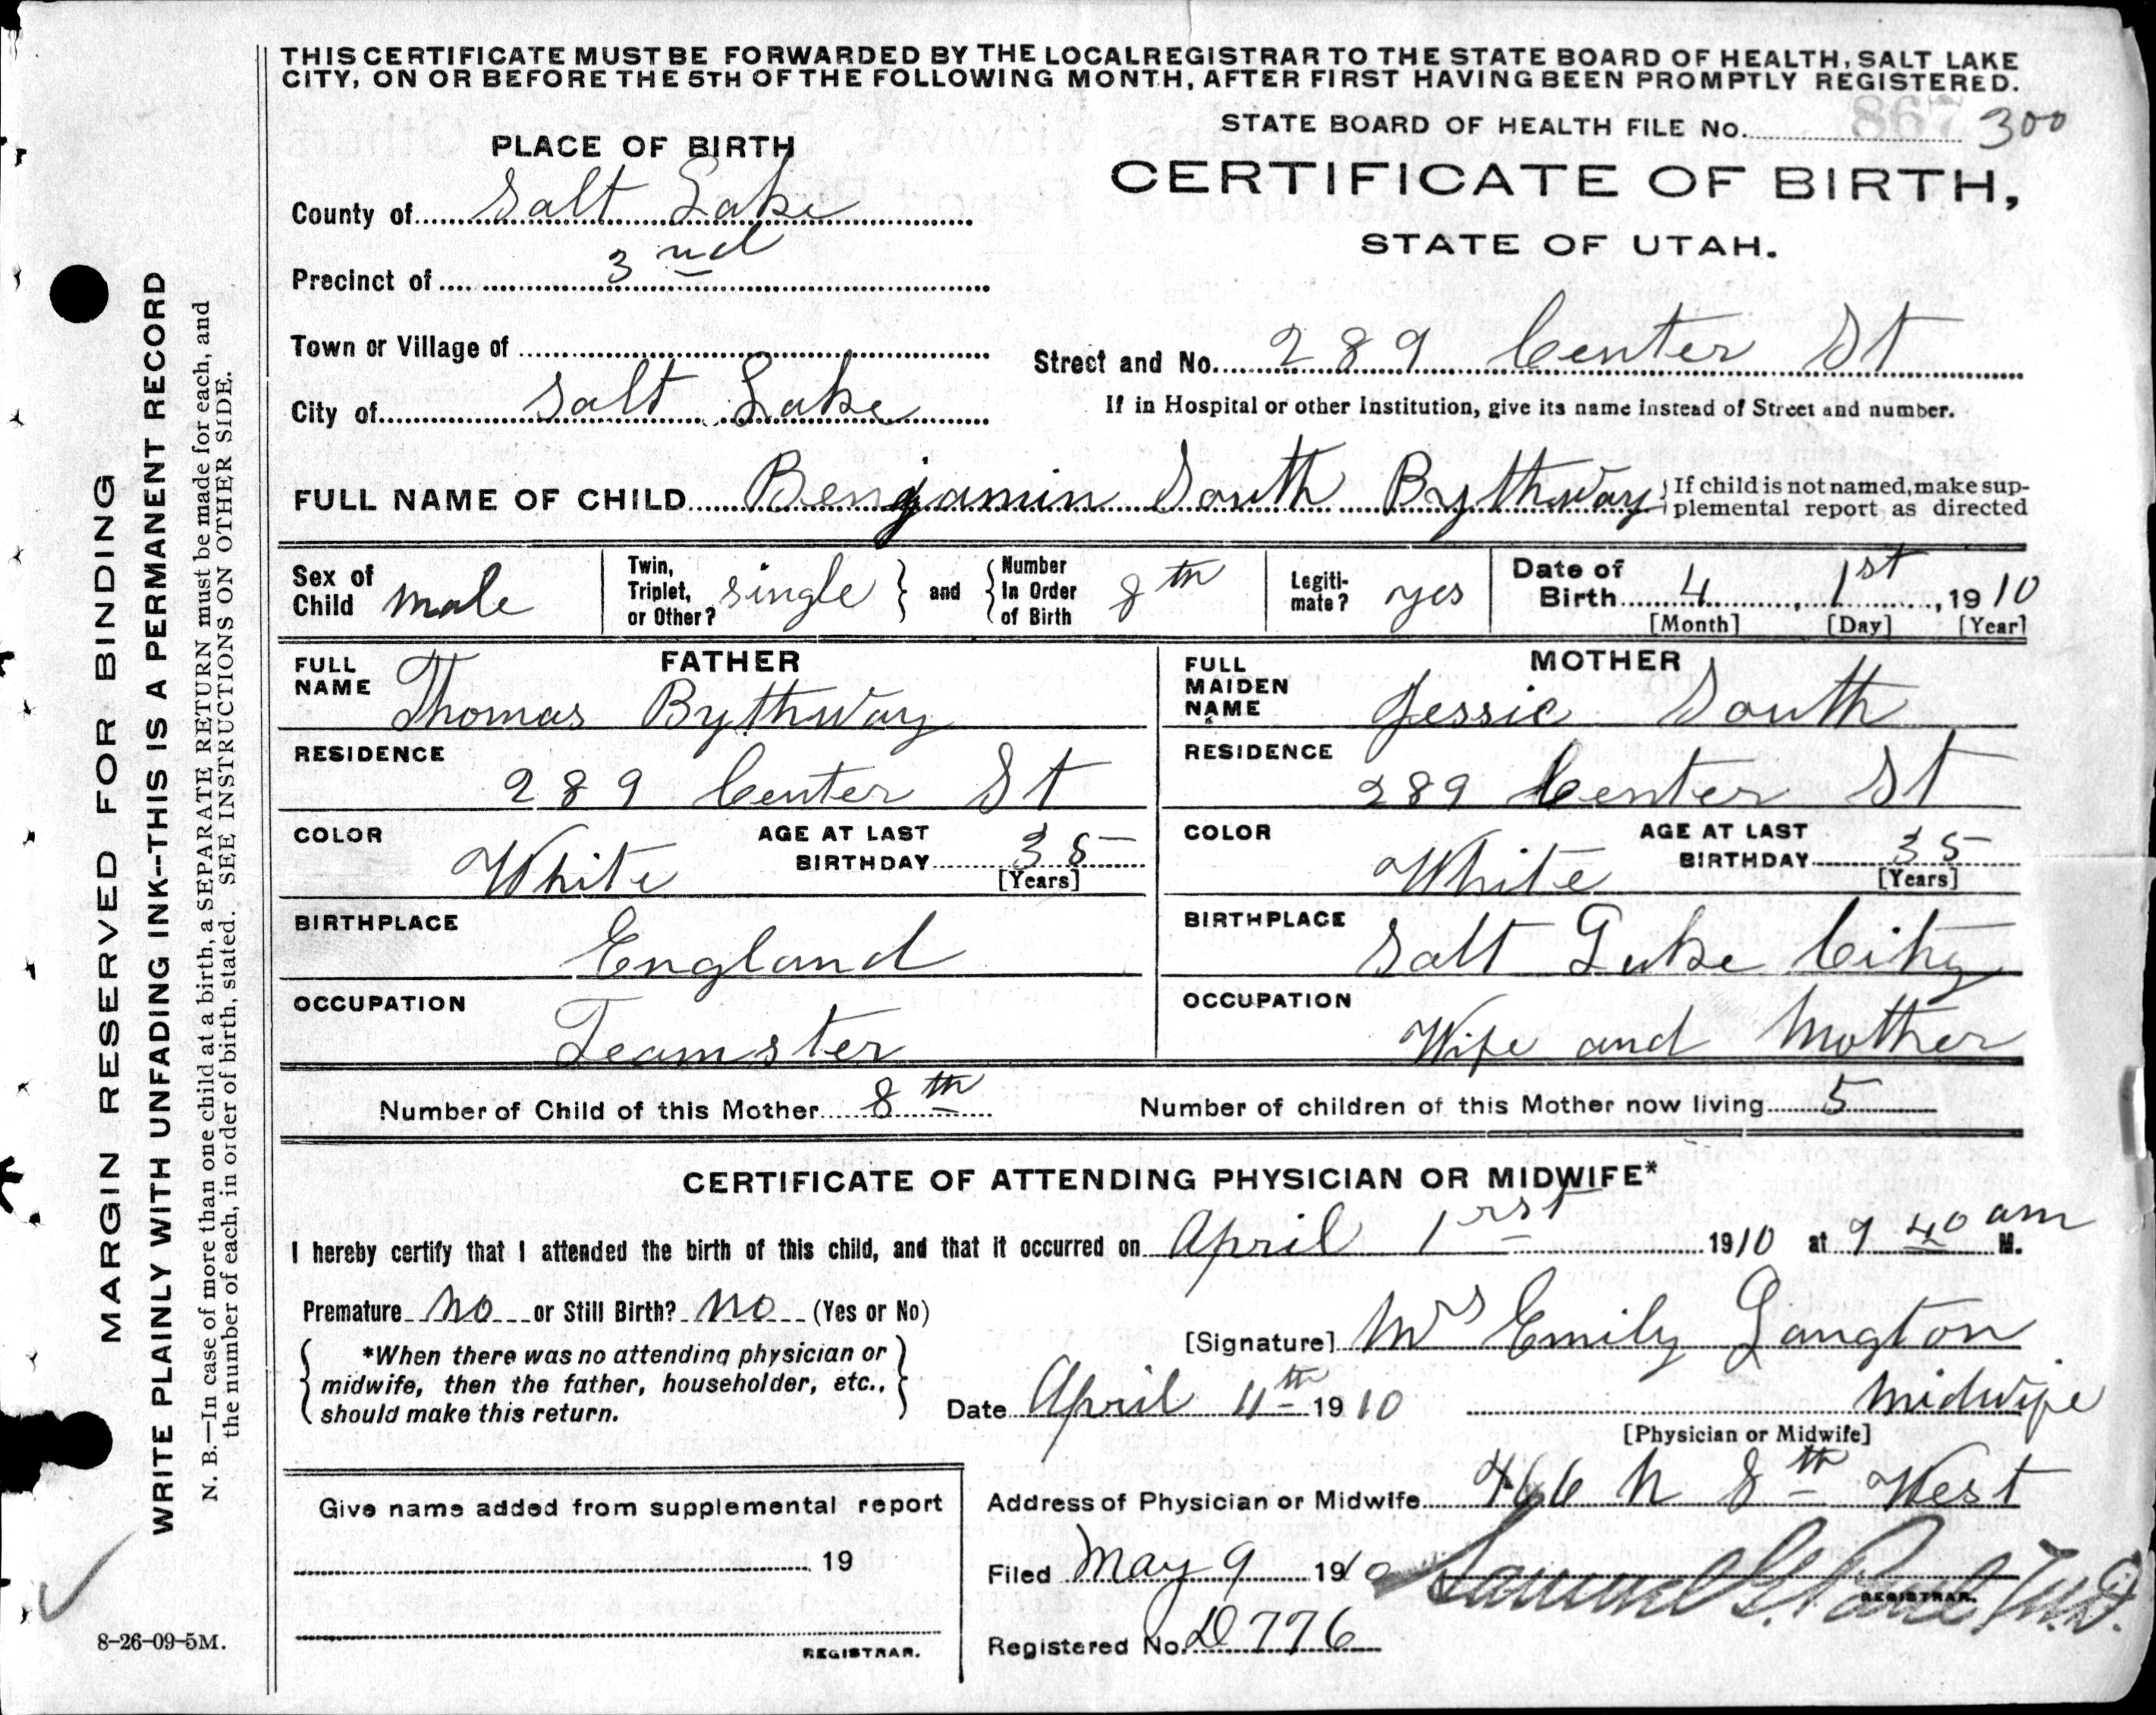 THIS CERTIFICATE MUST BE FORWARDED BY THE LOCAL REGISTRAR TO THE STATE BOARD OF HEALTH, SALT LAKE
CITY, ON OR BEFORE THE 5TH OF THE FOLLOWING MONTH, AFTER FIRST HAVING BEEN PROMPTLY REGISTERED.
STATE BOARD OF HEALTH FILE No. 300
PLACE OF BIRTH
CERTIFICATE OF BIRTH,
STATE OF UTAH.
County of Salt Lake
Precinct of 3nd
Town or Village of
Street and No. 289 Center St
City of Salt Lake
If in Hospital or other Institution, give its name instead of Street and number.
FULL NAME OF CHILD Benjamin South Bythway
If child is not named, make sup-
plemental report as directed
Sex of Child male
Twin, Triplet, or Other? single and Number In Order of Birth 8th
Legiti-mate? yes
Date of Birth 4, 1st, 1910
[Month] [Day] [Year]
FATHER
FULL NAME Thomas Bythway
RESIDENCE 289 Center St
COLOR White AGE AT LAST BIRTHDAY 35 [Years]
BIRTHPLACE England
OCCUPATION Teamster
MOTHER
FULL MAIDEN NAME Jessie South
RESIDENCE 289 Center St
COLOR White AGE AT LAST BIRTHDAY 35 [Years]
BIRTHPLACE Salt Lake City
OCCUPATION Wife and Mother
Number of Child of this Mother 8th Number of children of this Mother now living 5
CERTIFICATE OF ATTENDING PHYSICIAN OR MIDWIFE*
I hereby certify that I attended the birth of this child, and that it occurred on April 1rst 1910 at 9 40 am M.
Premature no or Still Birth? no (Yes or No)
[Signature] Mrs Emily Langton
*When there was no attending physician or
midwife, then the father, householder, etc.,
should make this return.
Date April 11th 1910 Midwife
[Physician or Midwife]
Address of Physician or Midwife 466 N 8th West
Give name added from supplemental report
19
REGISTRAR.
Filed May 9 1910 Samuel G. Paul M.D.
REGISTRAR.
Registered No. D776
MARGIN RESERVED FOR BINDING
WRITE PLAINLY WITH UNFADING INK--THIS IS A PERMANENT RECORD
N. B.—In case of more than one child at a birth, a SEPARATE RETURN must be made for each, and
the number of each, in order of birth, stated. SEE INSTRUCTIONS ON OTHER SIDE.
8-26-09-5M.